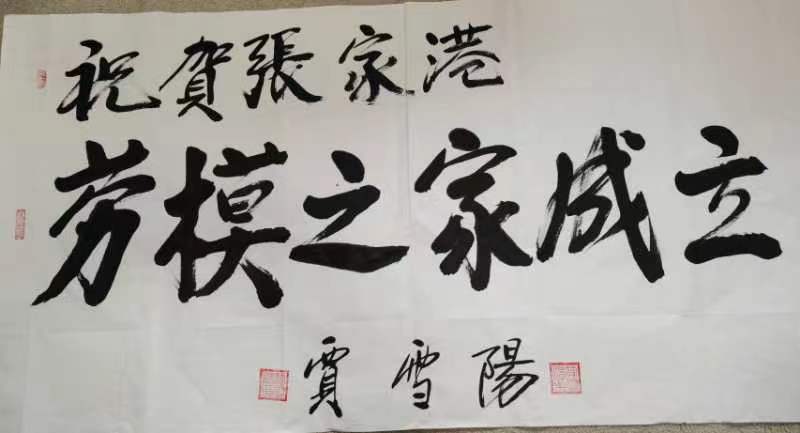 祝賀張家港
劳模之家成立
賈雪陽